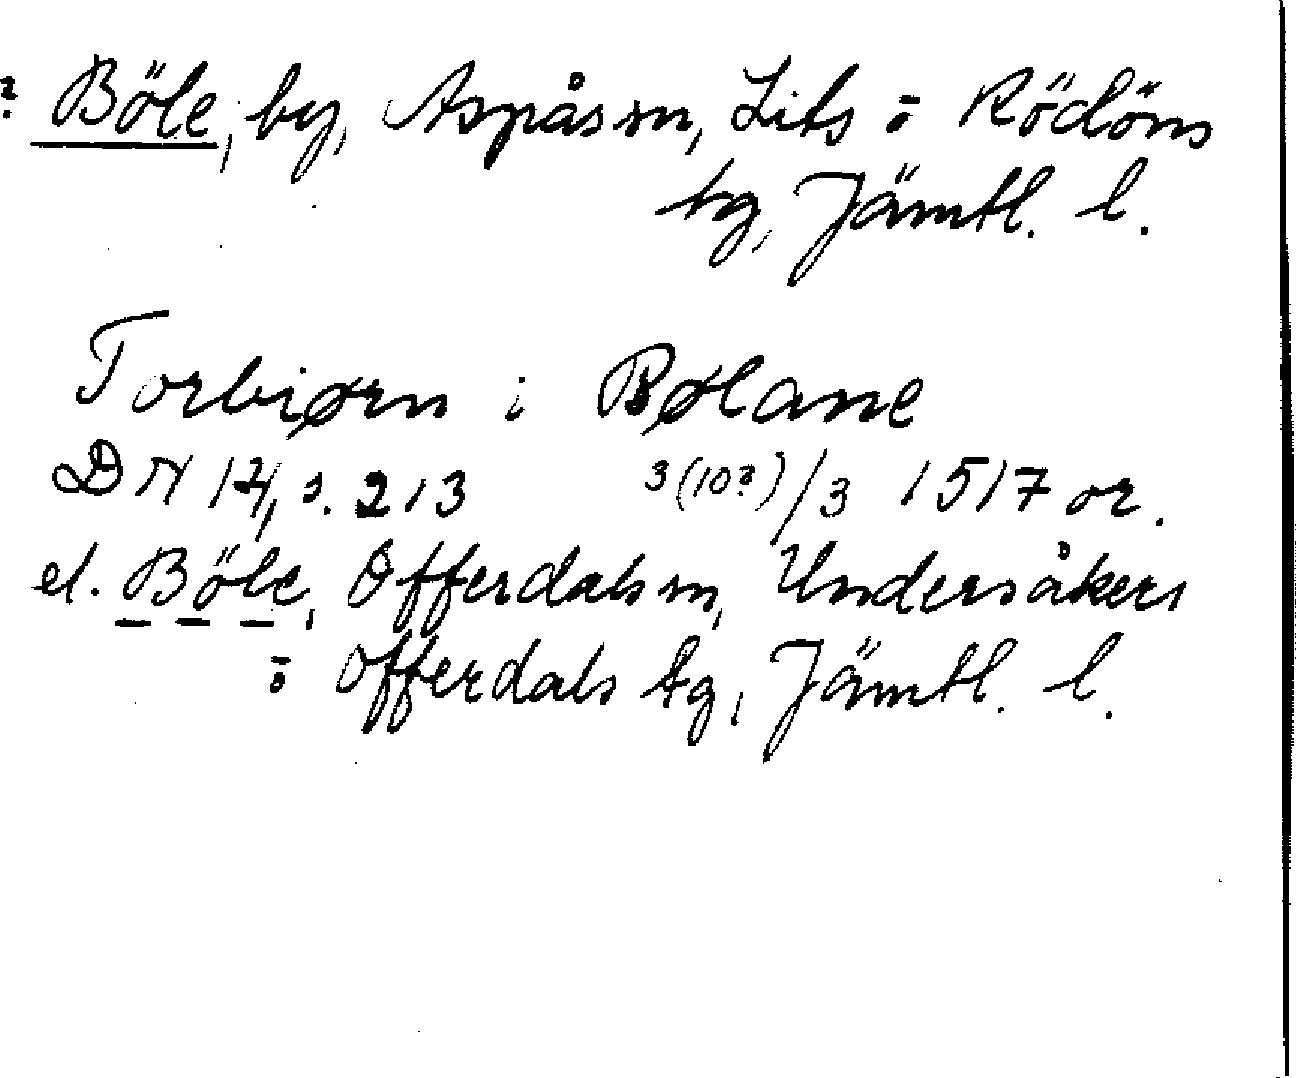 ? Böle, by, Aspås sn, Lits o Rödöns
tg, Jämtl. l.
Torbiørn i Bølane
DN 14, s. 213 3(10?)/3 1517 or.
el. Böle, Offerdals sn, Undersåkers
o Offerdals tg, Jämtl. l.